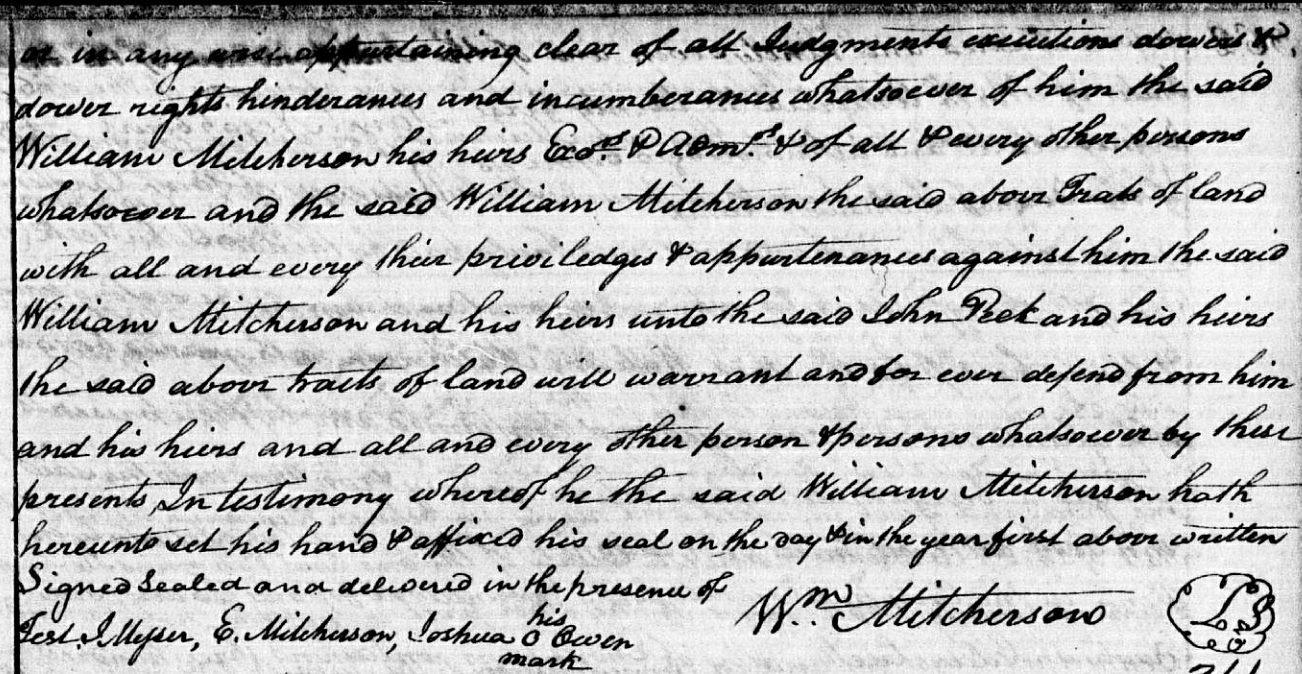 or in any wise appertaining clear of all Judgments executions dowers &
dower rights hinderances and incumberances whatsoever of him the said
William Mitcherson his heirs Exors. & Admrs. & of all & every other persons
whatsoever and the said William Mitcherson the said above Trats of land
with all and every their priviledges & appurtenances against him the said
William Mitcherson and his heirs unto the said John Peek and his heirs
the said above tracts of land will warrant and for ever defend from him
and his heirs and all and every other person & persons whatsoever by these
presents, In testimony whereof he the said William Mitcherson hath
hereunto set his hand & affixed his seal on the day & in the year first above written
Signed Sealed and delivered in the presence of
Wm. Mitcherson LS
Test. J. E. Mitcherson, Joshua his O Owen
mark